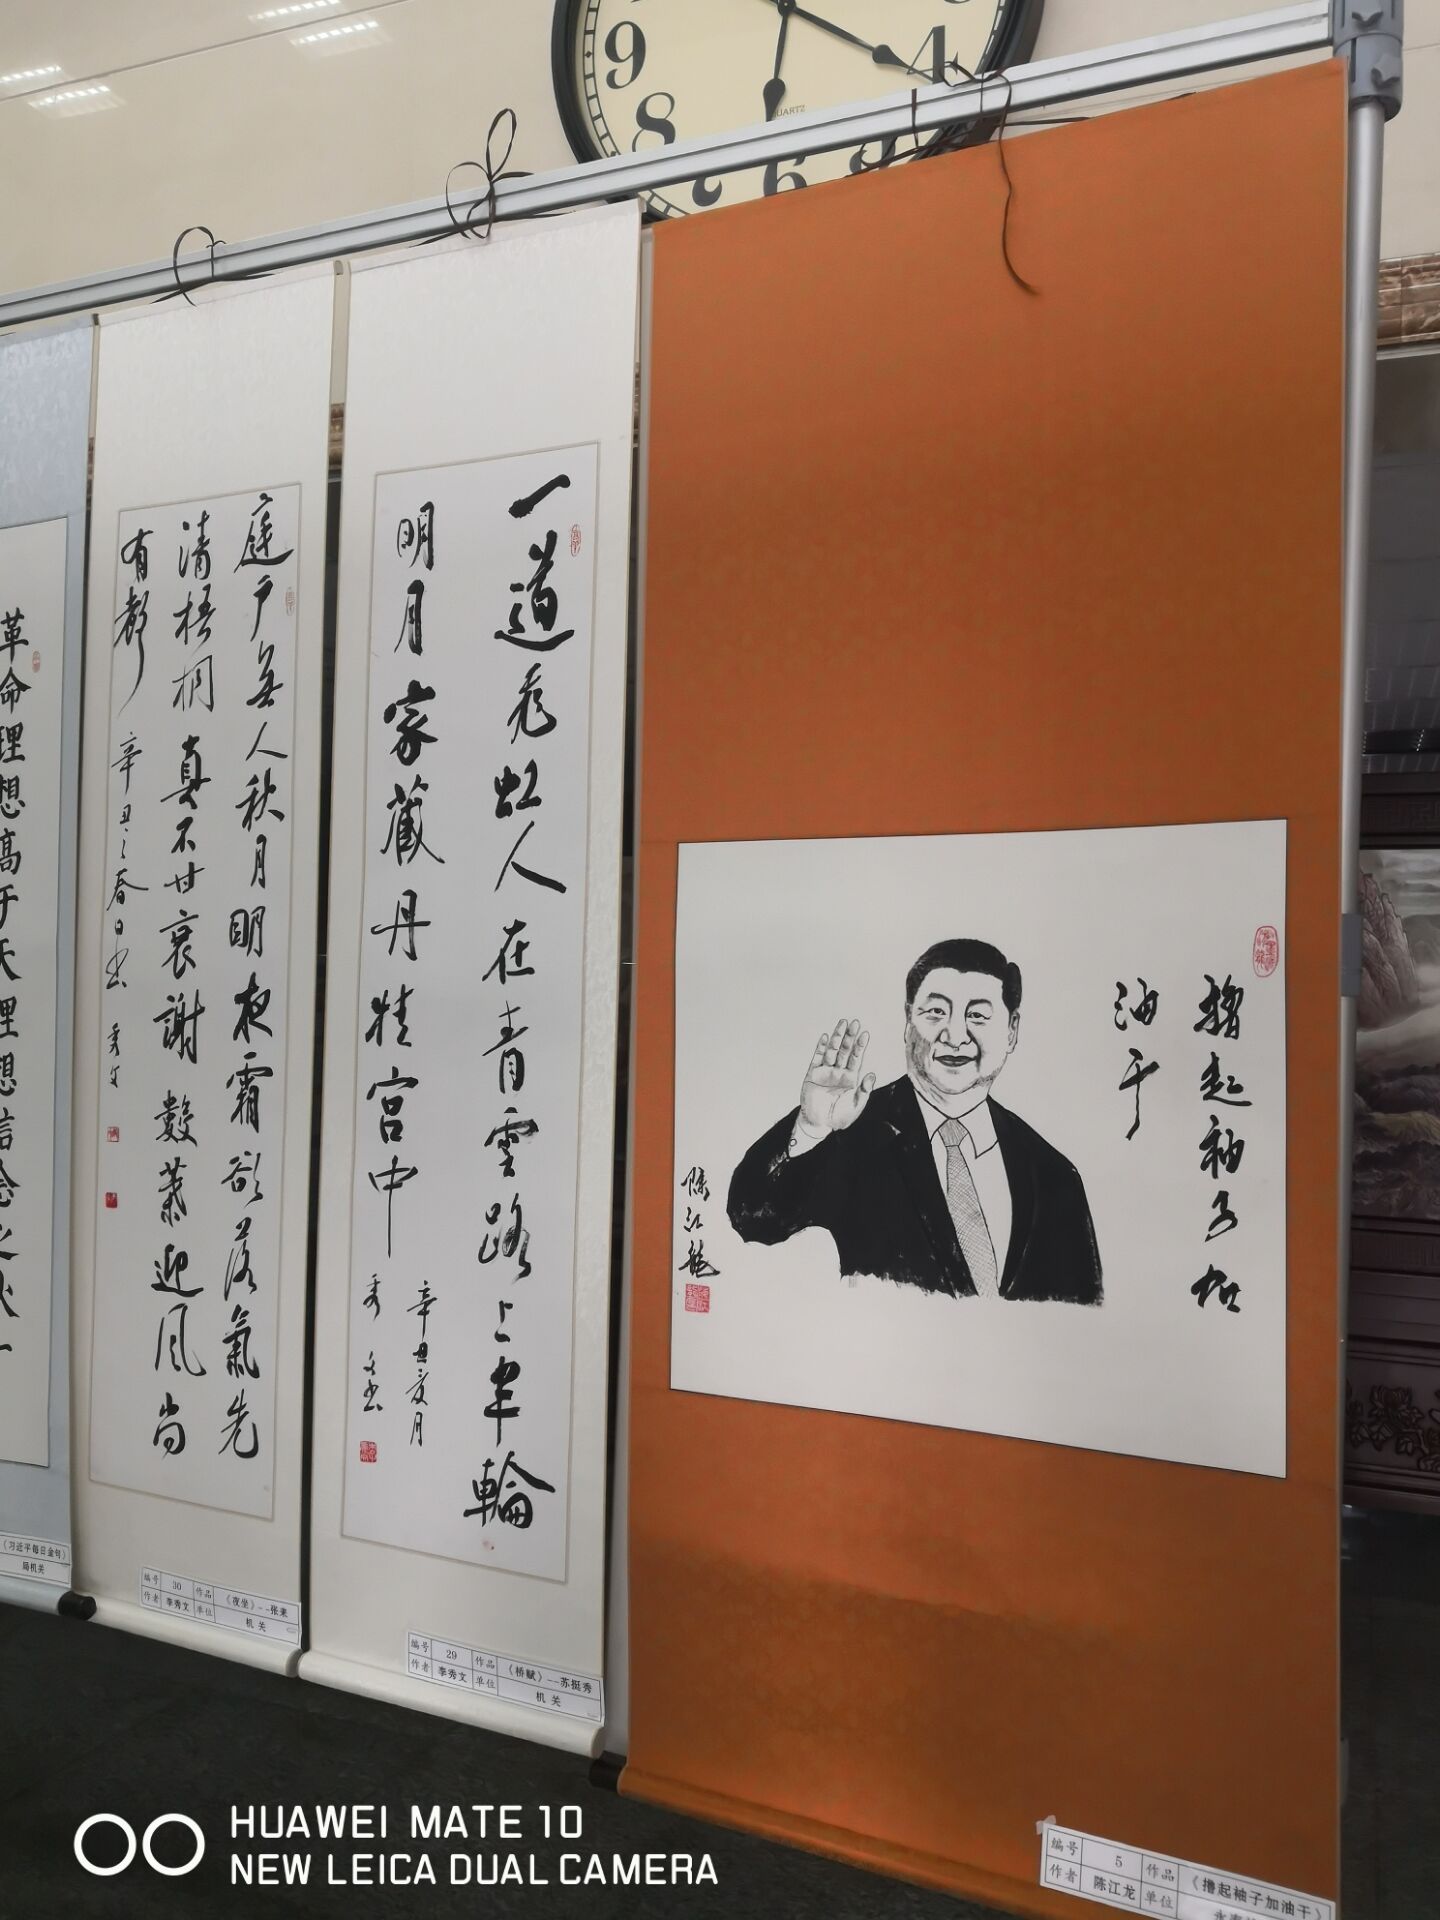 9
8
7
6
5
4
QUARTZ
撸起袖子加
油干
陈江龙
编号 5 作品 《撸起袖子加油干》
作者 陈江龙 单位
一道彩虹人在青雲路上半輪
明月家藏丹桂宫中
辛丑夏月
秀文书
编号 29 作品 《桥赋》--苏挺秀
作者 李秀文 单位 机关
庭户無人秋月明夜霜欲落氣先
清梧桐真不甘衰謝數葉迎风尚
有聲
辛丑之春日书
秀文
编号 30 作品 《夜坐》--张耒
作者 李秀文 单位 机关
革命理想高于天理想信念之火一
《习近平每日金句》
局机关
HUAWEI MATE 10
NEW LEICA DUAL CAMERA